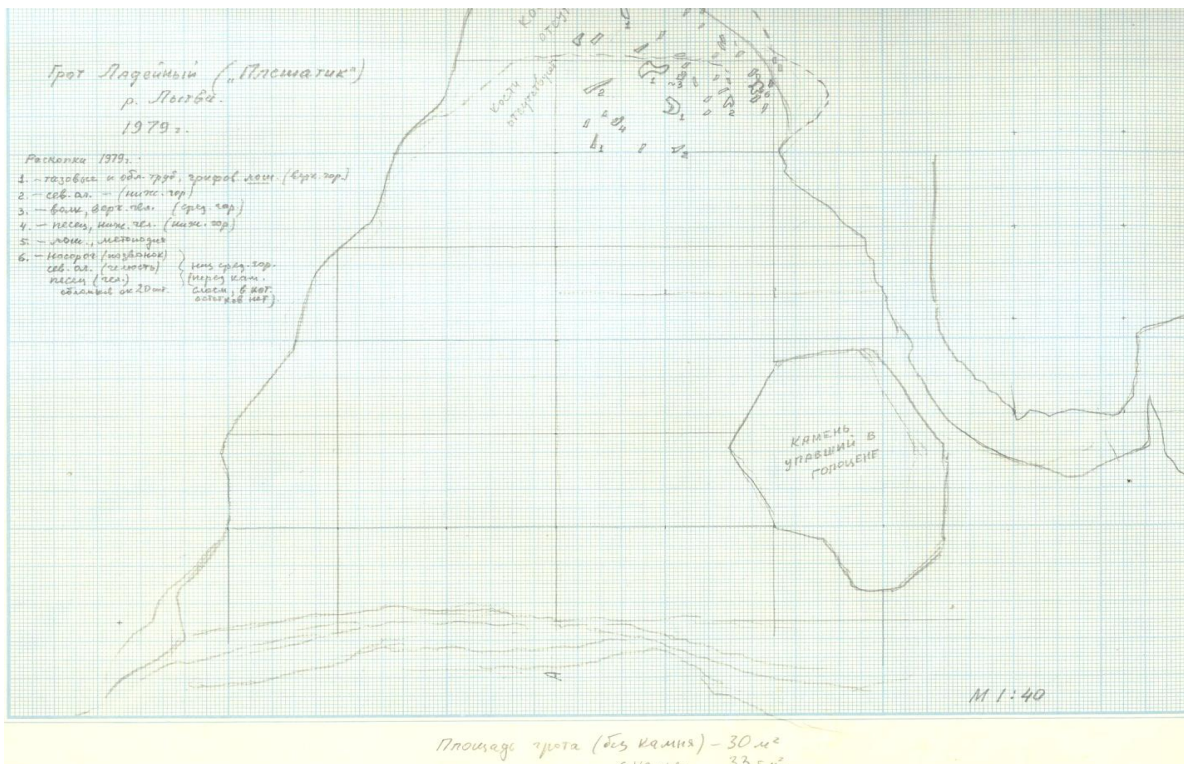 Грот Ладейный („Плешатик“)
р. Лытва.
1979 г.
Раскопки 1979г.
1. – тазовые и обл. труб. грифов. лош. (верх. гор.)
2. – сев. ол. – (ниж. гор)
3. – волк, верх. чел. (сред. гор)
4. – песец, ниж. чел. (ниж. гор)
5. – лош., метоподия
6. – носорог (позвонок)
сев. ол. (челюсть)
песец (чел.)
обломки ок 20 шт.
низ сред. гор.
(перед кам.
слоем, в кот.
остатков нет)
кости
отсутствуют
1
2
3
4
1
1
2
2
КАМЕНЬ
УПАВШИЙ В
ГОЛОЦЕНЕ
М 1:40
Площадь грота (без камня) – 30 м²